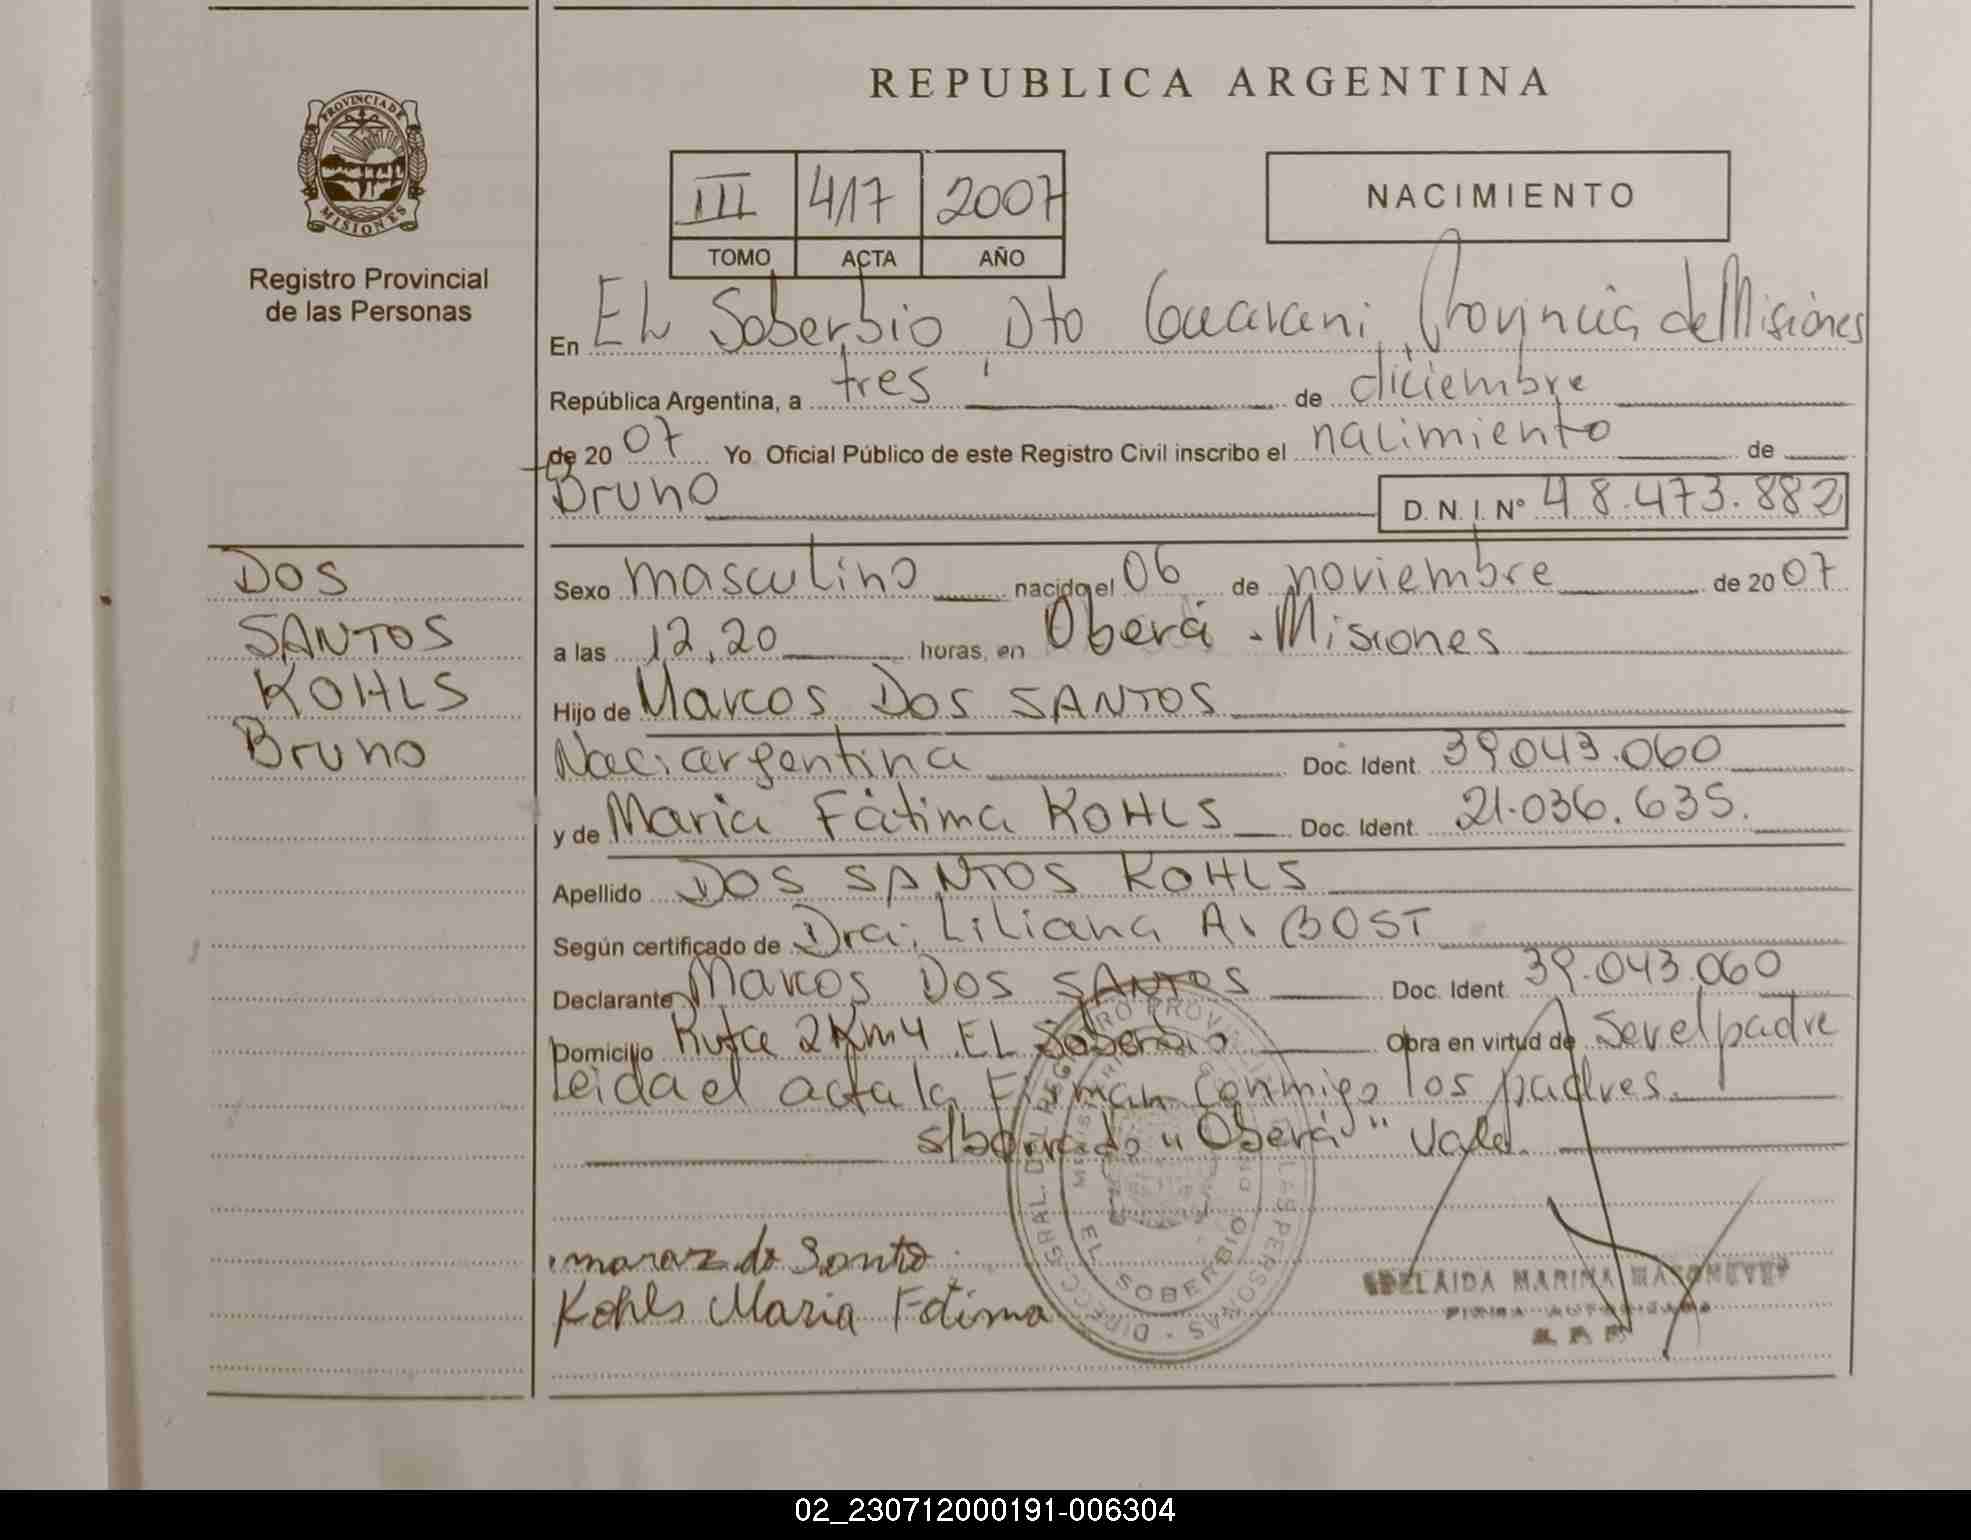 REPUBLICA ARGENTINA
PROVINCIA DE MISIONES
Registro Provincial
de las Personas
III 417 2007
TOMO ACTA AÑO
NACIMIENTO
En EL Soberbio, Dto Guarani, Provincia de Misiones
República Argentina, a tres de diciembre
de 20 07 Yo Oficial Público de este Registro Civil inscribo el nacimiento de
Bruno D.N.I. Nº 48.473.882
DOS
SANTOS
KOHLS
Bruno
Sexo masculino nacido el 06 de noviembre de 20 07
a las 12,20 horas, en Oberá - Misiones
Hijo de Marcos DOS SANTOS
Naci: argentina Doc. Ident. 39.043.060
y de Maria Fátima KOHLS Doc. Ident. 21.036.635.
Apellido DOS SANTOS KOHLS
Según certificado de Dra: Liliana A. BOST
Declarante Marcos DOS SANTOS Doc. Ident. 39.043.060
Domicilio Ruta 2 Km 4 EL Soberbio Obra en virtud de Ser el padre
Leida el acta la Firman conmigo los padres.
s/borrado "Oberá" Vale.
DIRECC. GRAL. DEL REGISTRO PROVINCIAL DE LAS PERSONAS
EL SOBERBIO
Kohls Maria Fátima
ADELAIDA MARINA
FIRMA AUTORIZADA
02_230712000191-006304